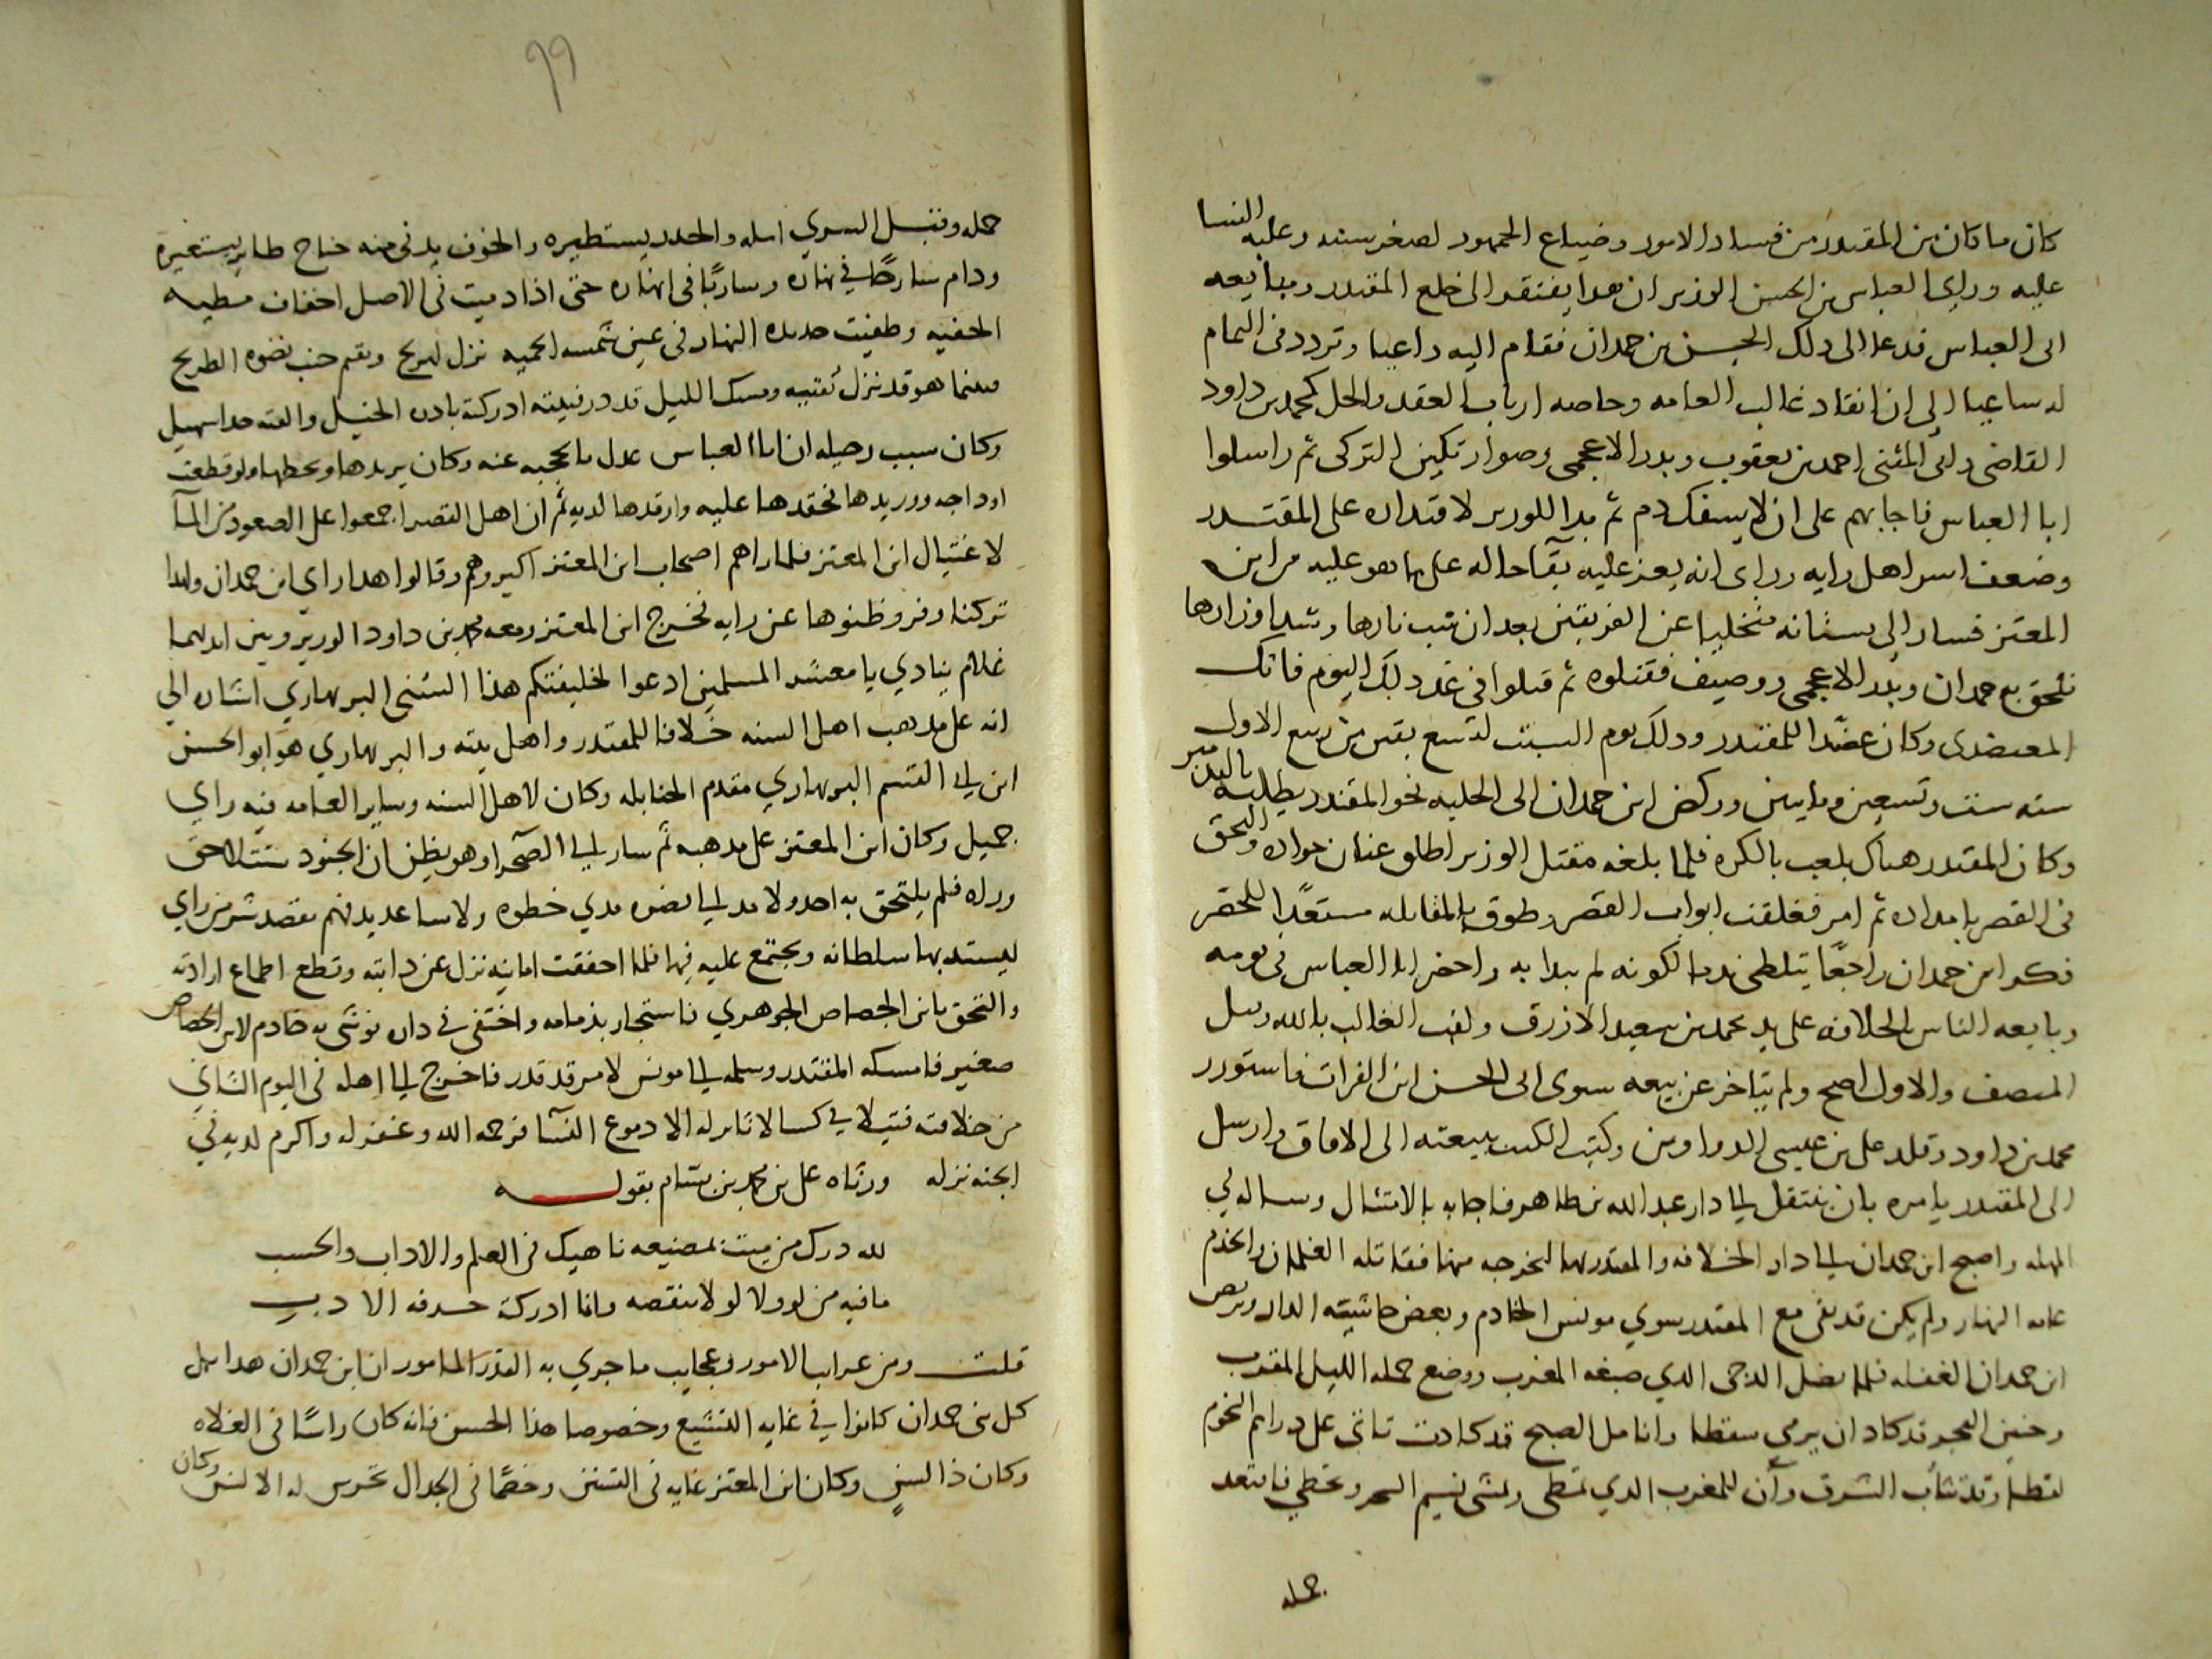 كان ما كان من المقتدر من فساد الامور وضياع الجمهور لصغر سنه وغلبه النسا
عليه وراى العباس بن الحسن الوزير ان هدا يفتقر الى خلع المقتدر ومبايعه
ابى العباس فدعا الى دلك الحسين بن حمدان فقام اليه داعيا وتردد فى التمام
له ساعيا الى ان انقاد غالب العامه وخاصه ارباب العقد والحل كمحمد بن داود
القاضى وابى المثنى احمد بن يعقوب وبدر الاعجمى وصوارتكين التركى ثم راسلوا
ابا العباس فاجابهم على ان لا يسفك دم ثم بدا للوزير لاقتداره على المقتدر
وضعف اسر اهل رايه وراى انه يعز عليه بقا حاله على ما هو عليه من ابن
المعتز فسار الى بستانه متخليا عن الفريقين بعد ان شب نارها وشد اوزارها
فلحق به حمدان وبدر الاعجمى ووصيف فقتلوه ثم قتلوا فى غد دلك اليوم فاتك
المعتضدى وكان عضدا للمقتدر ودلك يوم السبت لتسع بقين من ربيع الاول
سنه ست وتسعين ومايتين وركض ابن حمدان الى الحلبه نحو المقتدر يطلبه
وكان المقتدر هناك يلعب بالكره فلما بلغه مقتل الوزير اطلق عنان جواده والتحق
فى القصر بامداده ثم امر فغلقت ابواب القصر وطوق بالمقاتله مستعدا للحصر
فكر ابن حمدان راجعا يتلظى ندما لكونه لم يبدا به واحضر ابا العباس فى يومه
وبايعه الناس بالخلافه على يد محمد بن سعيد الازرق ولقب الغالب بالله وقيل
المنصف والاول اصح ولم يتاخر عن بيعه سوى ابى الحسن ابن الفرات فاستوزر
محمد بن داود وقلد على بن عيسى الدواوين وكتب الكتب ببيعته الى الافاق وارسل
الى المقتدر يامره بان ينتقل الى دار عبد الله بن طاهر فاجابه بالامتثال وساله فى
المهله واصبح ابن حمدان الى دار الخلافه والمقتدر بها ليخرجه منها فقاتله الغلمان والخدم
عامه النهار ولم يكن قد بقى مع المقتدر سوي مونس الخادم وبعض حاشيته الدار وتربص
ابن حمدان الغفله فلما نضل الدجى الدي صبغه المغرب ووضع حمله الليل المقرب
وجنين الفجر قد كاد ان يرمي سقطا وانامل الصبح قد كادت تاتى على دراهم النجوم
لقطا وقد تثاب الشرق وآن للمغرب الدي تمطى ومشى نسيم السحر وتخطي فابتعد
حمله
٩٩
حمله وقتبل السري اسله والحدر يستطيره والخوف يدنى منه جناح طاير يستعيره
ودام سارحا في نهاره وساربا فى انهاره حتى اذا دميت فى الاصل اخفاف مطيه
الحفيه وطفيت حديده النهار فى عين شمسه الحميه نزل ليريح ويقم جنب نضوه الطريح
فبينما هو قد نزل بقتبه ومسك الليل قد در فيلته ادركته بادره الخيل والقته مداسهيل
وكان سبب رحيله ان ابا العباس عدل بالحجبه عنه وكان يريدها ويخطبها ولو قطعت
اوداجه ووريدها فحقدها عليه وارقدها لديه ثم ان اهل القصر اجمعوا على الصعود من الما
لاغتيال ابن المعتز فلما راهم اصحاب ابن المعتز اكبروهم وقالوا هدا راي ابن حمدان ولهدا
تركنا وفر وظنوها عن رايه فخرج ابن المعتز ومعه محمد بن داود الوزير وبين ايديهما
غلام ينادي يا معشر المسلمين ادعوا لخليفتكم هذا السنى البربهاري اشاره الي
انه على مدهب اهل السنه خلافا للمقتدر واهل بيته والبربهاري هو ابو الحسن
ابن ابي القسم البربهاري مقدم الحنابله وكان لاهل السنه وساير العامه فيه راي
جميل وكان ابن المعتز على مدهبه ثم سار الي الصحرا وهو يظن ان الجنود ستتلاحق
وراه فلم يلتحق به احد ولا مد الي نضوه مدي خطوه ولا ساعد يد فهم بقصد سر من راي
ليستد بها سلطانه ويجتمع عليه فيها فلما اخفقت امانيه نزل عن دابته وقطع اطماع ارادته
والتحق بابن الجصاص الجوهري فاستجار بذمامه واختفى في داره فوشى به خادم لابن الجصاص
صغير فامسكه المقتدر وسلمه الي مونس لامر قد قدر فاخرج الي اهله فى اليوم الثاني
من خلافته قتيلا في كسا لا ثاير له الا دموع النسا فرحمه الله وغفر له واكرم لديه في
الجنه نزله ورثاه على بن محمد بن بسام بقوله
لله درك من ميت بمضيعه ناهيك فى العلم والاداب والحسب
ما فيه من لو ولا لولا فتنقصه وانما ادركته حرفه الادب
قلت ومن غرايب الامور وعجايب ما جري به القدر المامور ان ابن حمدان هدا بل
كل بنى حمدان كانوا في غايه التشيع وخصوصا هذا الحسين فانه كان راسا فى الغلاه
وكان ذا لسن وكان ابن المعتز غايه فى التسنن وخصما فى الجدال تخرس له الالسن وكان